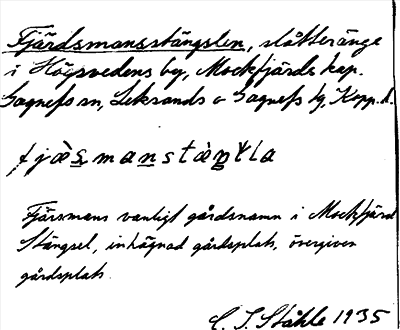 Fjärdsmansstängslen, slåtteränge
i Högsvedens by, Mockfjärds kap.
Gagnefs sn, Leksands o Gagnefs tg, Kopp. l.
fjæ̀s̲man̲stæ̀n̲sla
Fjärsmans vanligt gårdsnamn i Mockfjärd
Stängsel, inhägnad gårdsplats, övergiven
gårdsplats.
C. I. Ståhle 1935